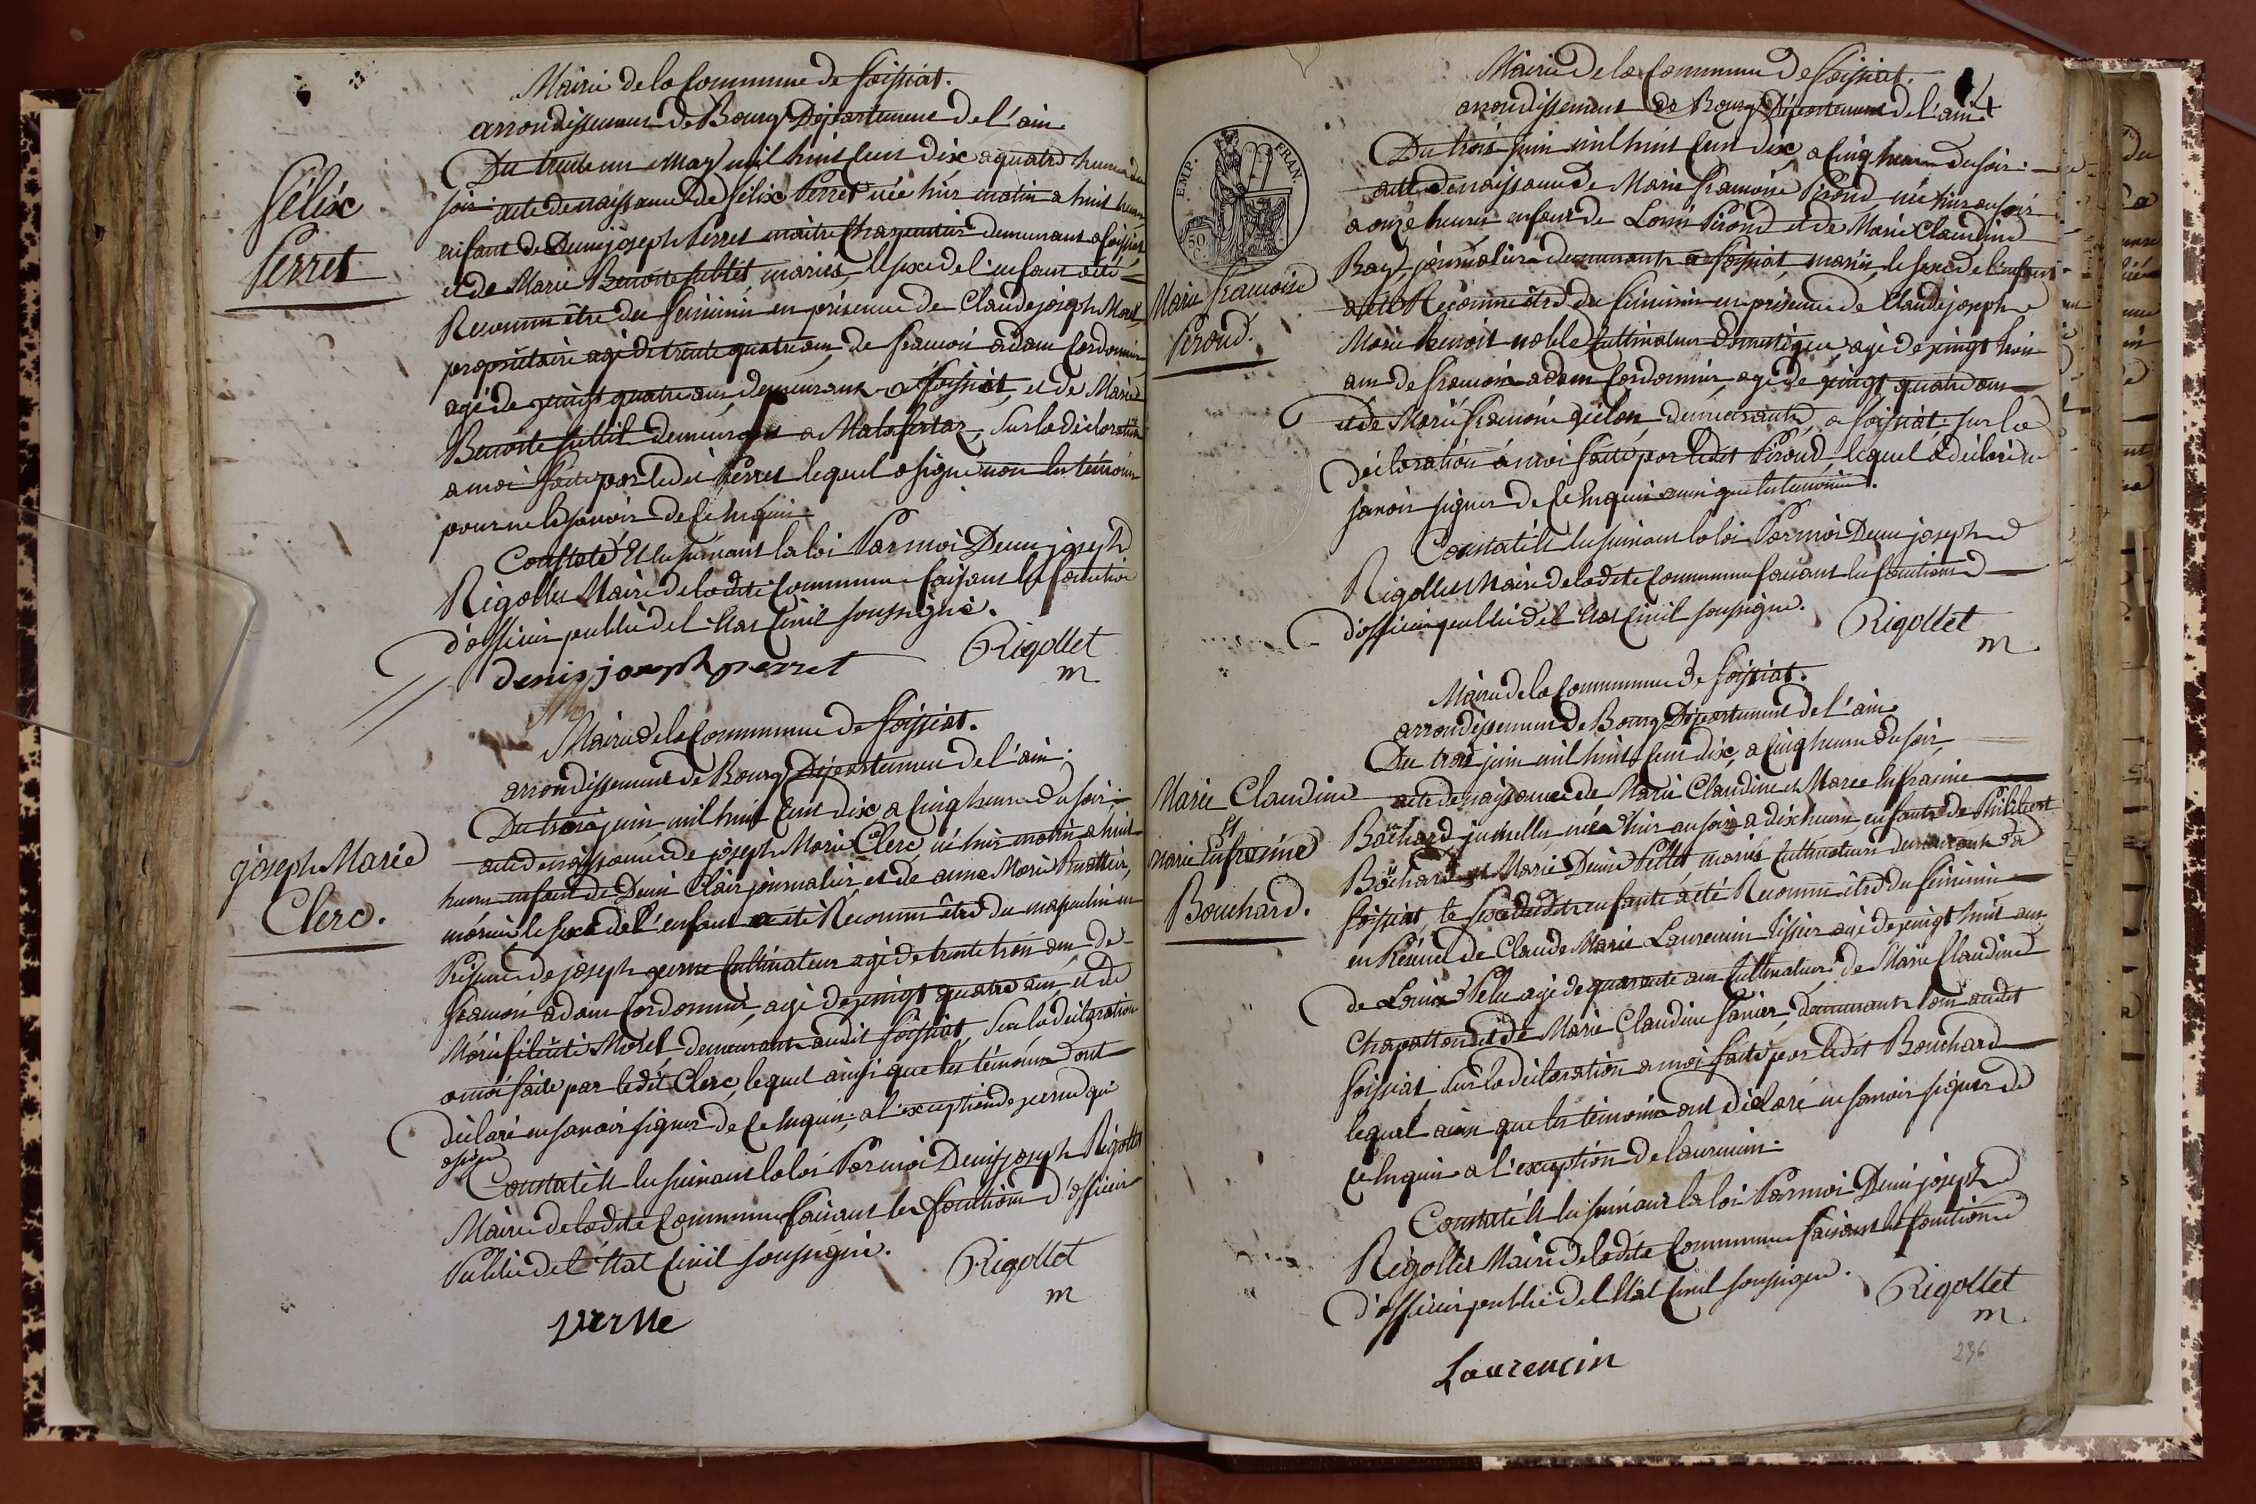 Mairie de la Commune de foissiat.
arrondissement de Bourg Département de l'ain
Du trente un May mil huit Cent dix a quatre heures du
soir acte de naissance de félix Perret née hier matin a huit heures
enfant de Denis joseph Perret maitre Charpentier demeurant a foissiat
et de Marie Benoite mariés, le sexe de l'enfant a été
Reconnu être du feminin en présence de Claude joseph Morel
propriétaire agé de trente quatre ans, de francois adam Cordonnier
agé de vingt quatre ans demeurant a foissiat, et de Marie
Benoite demeurant a Malafretaz, sur la déclaration
a moi faite par ledit Perret lequel a signé non les témoins
pour ne le savoir de ce Enquis.
Constaté Et lu suivant la loi Par moi Denis joseph
Rigollet Maire de ladite Commune faisant les fonctions
d'officier public de l'Etat Civil soussigné.
Rigollet
m
denis joseph perret
félix
Perret
Mairie de la Commune de foissiat.
arrondissement de Bourg Département de l'ain.
Du trois juin mil huit Cent dix a Cinq heures du soir
acte de naissance de joseph Marie Clerc né hier matin a huit
heures enfant de Denis Clair journalier, et de anne Marie
mariés le sexe de l'enfant a été Reconnu être du masculin en
Présence de joseph verne Cultivateur agé de trente trois ans de
francois adam Cordonnier, agé de vingt quatre ans et de
Marie Morel demeurants audit foissiat, sur la déclaration
a moi faite par ledit Clerc, lequel ainsi que les témoins ont
déclaré ne savoir signer de ce Enquis, a l'exception de verne qui
a signé
Constaté Et lu suivant la loi Par moi Denis joseph Rigollet
Maire de ladite Commune faisant les fonctions d'officier
Public de l'Etat Civil soussigné.
Rigollet
m
verne
joseph Marie
Clerc.
Mairie de la Commune de foissiat.
arrondissement de Bourg Département de l'ain
Du trois juin mil huit Cent dix, a Cinq heures du soir
acte de naissance de Marie francoise Péroud née hier au soir
a onze heures enfant de Louis Péroud et de Marie Claudine
Ray journaliers demeurants a foissiat mariés, le sexe de l'enfant
a été Reconnu être du feminin en présence de Claude joseph
Marie benoit noble Cultivateur Domestique agé de vingt trois
ans de francois adam Cordonnier agé de vingt quatre ans
et de Marie francoise demeurants, a foissiat sur la
déclaration a moi faite par ledit Péroud lequel a déclaré ne
savoir signer de ce Enquis ainsi que les témoins.
Constaté Et lu suivant la loi Par moi Denis joseph
Rigollet Maire de ladite Commune faisant les fonctions
d'officier public de l'Etat Civil soussigné.
Rigollet
m
EMP. FRAN.
50 C.
Marie francoise
Péroud.
Mairie de la Commune de foissiat.
arrondissement de Bourg Département de l'ain
Du trois juin mil huit Cent dix, a Cinq heures du soir
acte de naissance de Marie Claudine et Marie Eufrasine
Bouchard jumelles, née hier au soir a dix heures, enfants de Philibert
Bouchard et Marie Denise mariés Cultivateurs demeurants a
foissiat, le sexe desdits enfants a été Reconnu être du feminin
en Présence de Claude Marie Laurencin Tissier agé de vingt huit ans
de Louis Velu agé de quarante ans Cultivateur, de Marie Claudine
et de Marie Claudine demeurants tous audit
foissiat sur la déclaration a moi faite par ledit Bouchard
lequel ainsi que les témoins ont déclaré ne savoir signer de
ce Enquis a l'exception de laurencin.
Constaté Et lu suivant la loi Par moi Denis joseph
Rigollet Maire de ladite Commune faisant les fonctions
d'officier public de l'Etat Civil soussigné.
Rigollet
m.
Laurencin
236
Marie Claudine
Et
Marie Eufrasine
Bouchard.